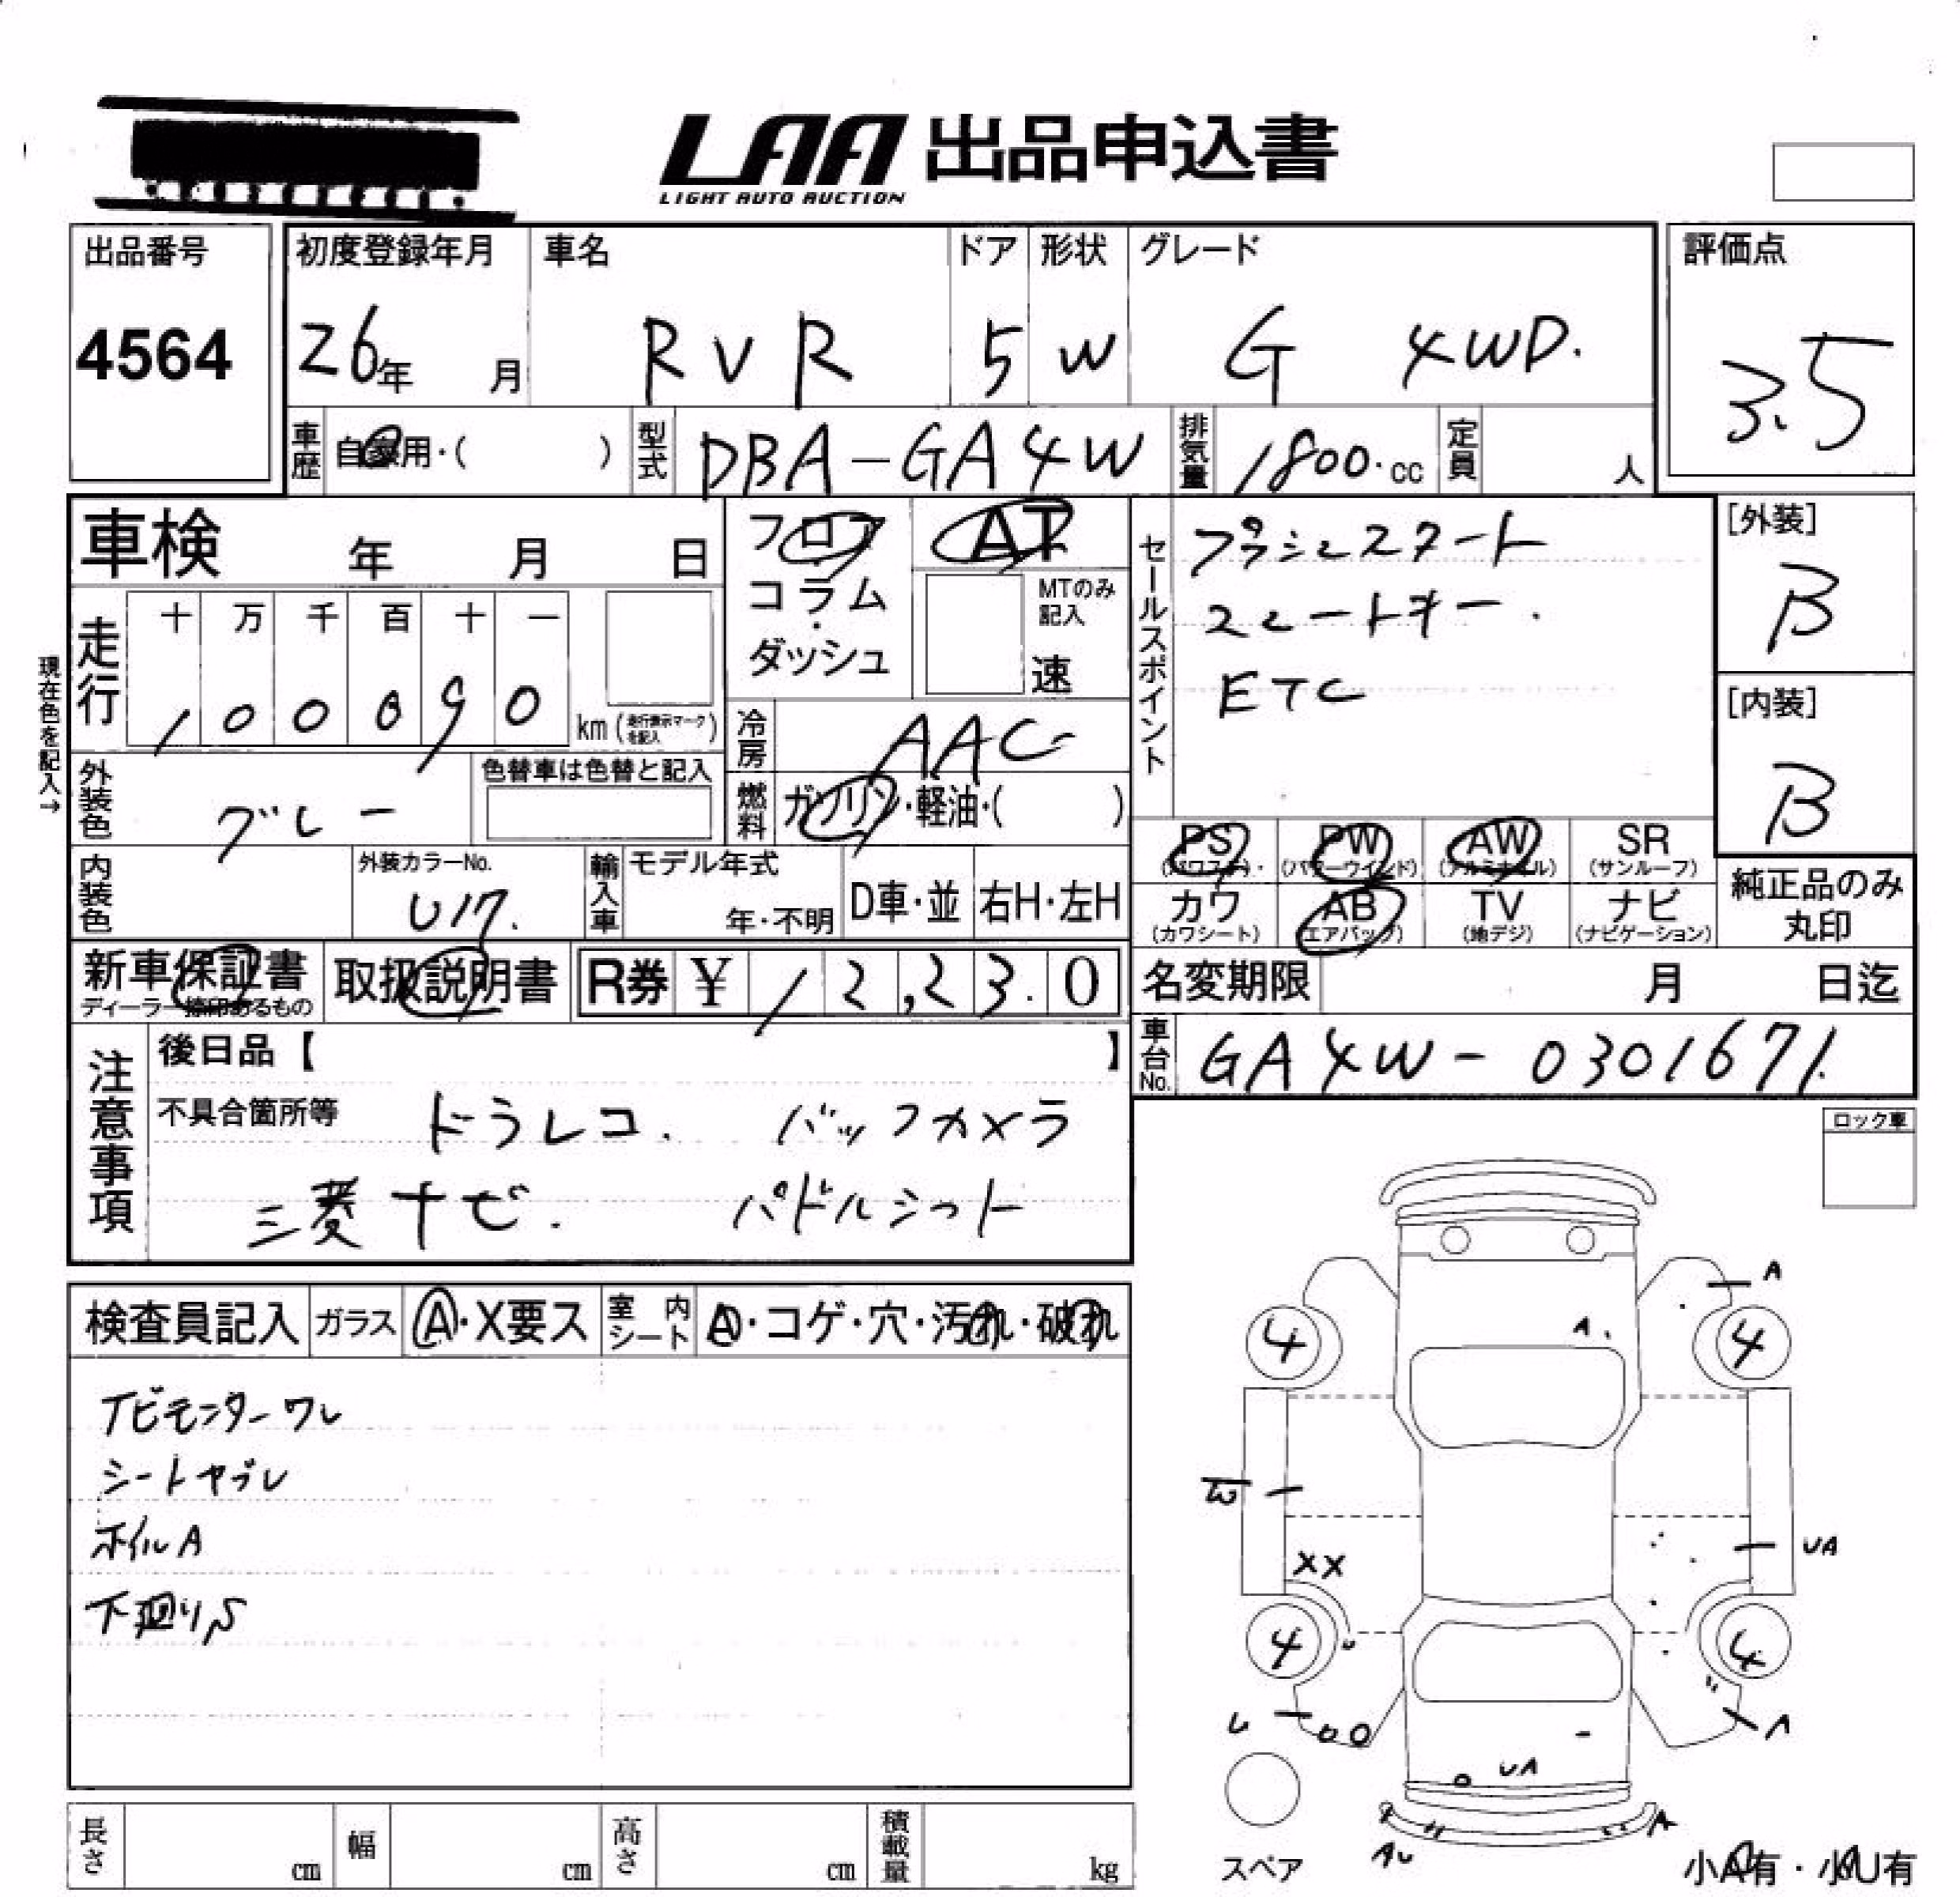 LAA 出品申込書
LIGHT AUTO AUCTION
出品番号
4564
初度登録年月
26年 月
車名
RVR
ドア
5
形状
W
グレード
G 4WD.
評価点
3.5
車歴 自家用・( )
型式 DBA-GA4W
排気量 1800.cc
定員 人
車検 年 月 日
現在色を記入→
走行
十 万 千 百 十 一
km (走行表示マークを記入)
外装色 グレー
色替車は色替と記入
内装色
外装カラーNo.
U17.
輸入車
モデル年式
年・不明
D車・並
右H・左H
フロア
・
コラム
・
ダッシュ
AT
MTのみ
記入
速
冷房 AAC
燃料 ガソリン・軽油・( )
セールスポイント
プッシュスタート
スマートキー.
ETC
[外装]
B
[内装]
B
PS (パワステ)
PW (パワーウインド)
AW (アルミホイル)
SR (サンルーフ)
カワ (カワシート)
AB (エアバッグ)
TV (地デジ)
ナビ (ナビゲーション)
純正品のみ
丸印
新車保証書
ディーラー捺印あるもの
取扱説明書
R券 ¥ 12,23.0
名変期限 月 日迄
車台No. GA4W-0301671.
注意事項
後日品【 】
不具合箇所等
ドラレコ. バックカメラ
三菱ナビ. パドルシフト
ロック車
検査員記入
ガラス A・X要ス
室内シート A・コゲ・穴・汚れ・破れ
シートヤブレ
ホイルA
下廻りS
A
A.
4 4
W
UA
XX
4 4
U
A
UA
A
AU
スペア
小A有・小U有
長さ cm
幅 cm
高さ cm
積載量 kg